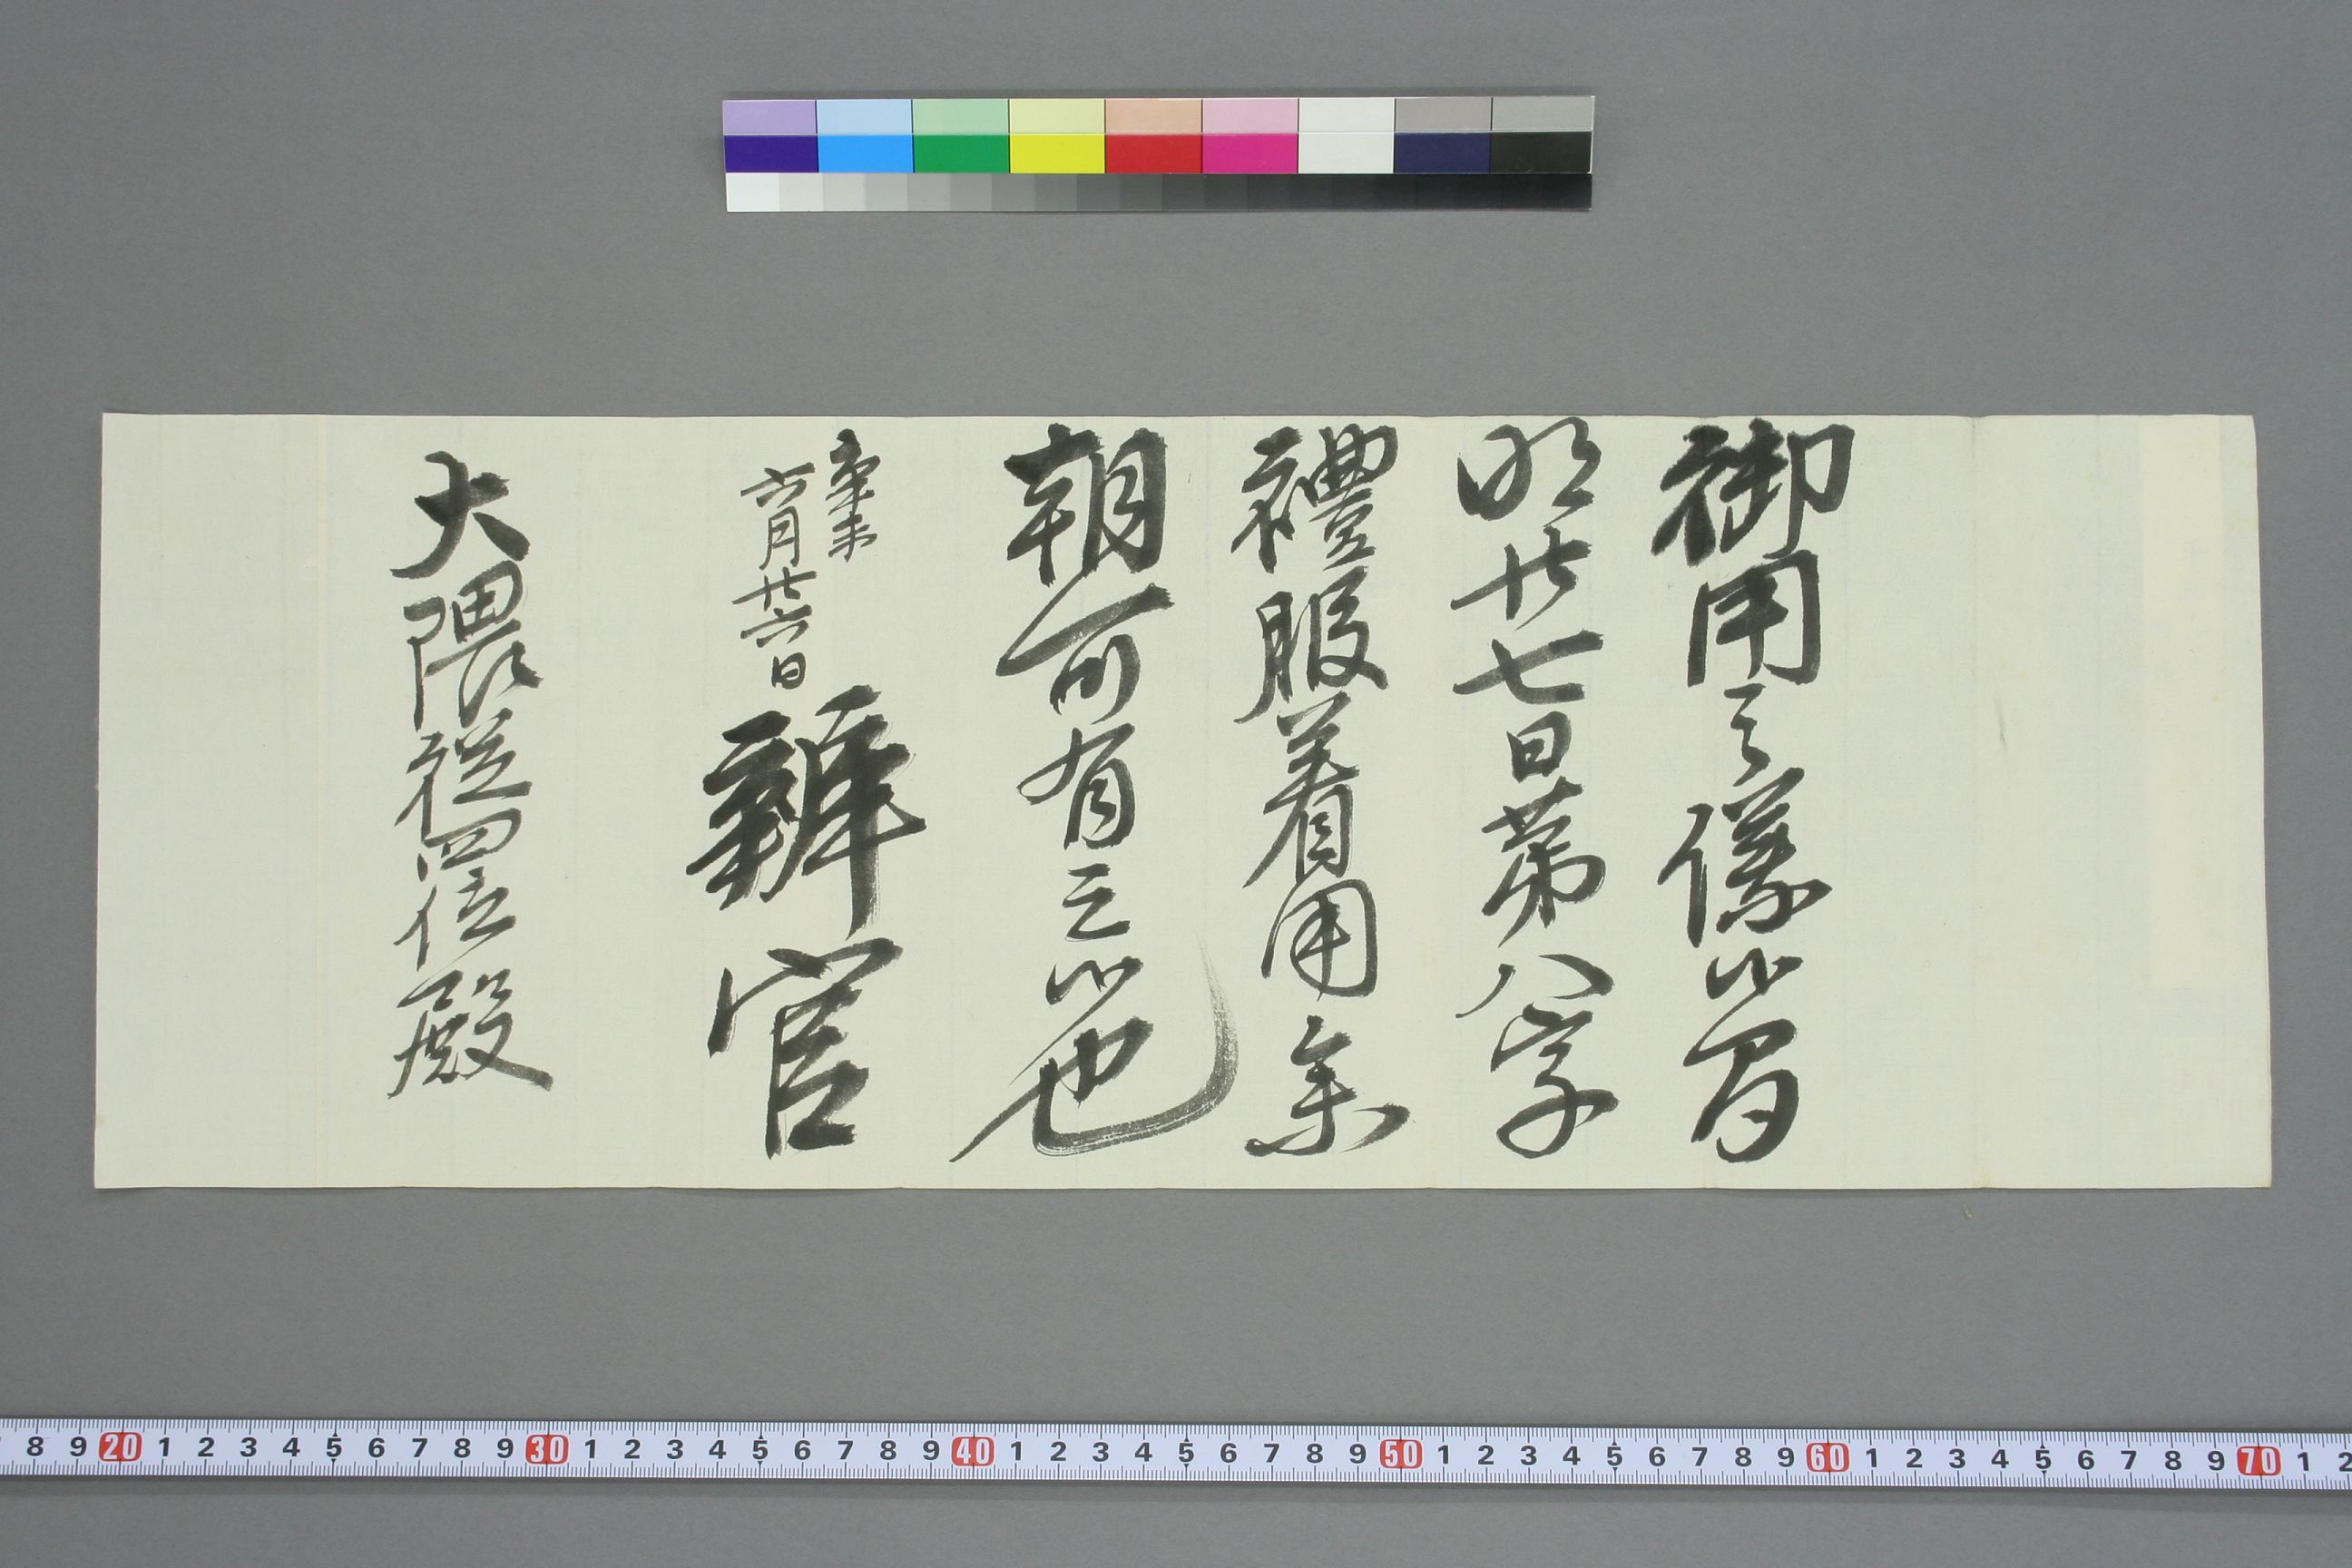 御用之儀候間
明廿七日第八字
禮服着用参
朝可有之候也
辛未
六月廿六日
辨官
大隈從四位殿
8 9 20 1 2 3 4 5 6 7 8 9 30 1 2 3 4 5 6 7 8 9 40 1 2 3 4 5 6 7 8 9 50 1 2 3 4 5 6 7 8 9 60 1 2 3 4 5 6 7 8 9 70 1 2